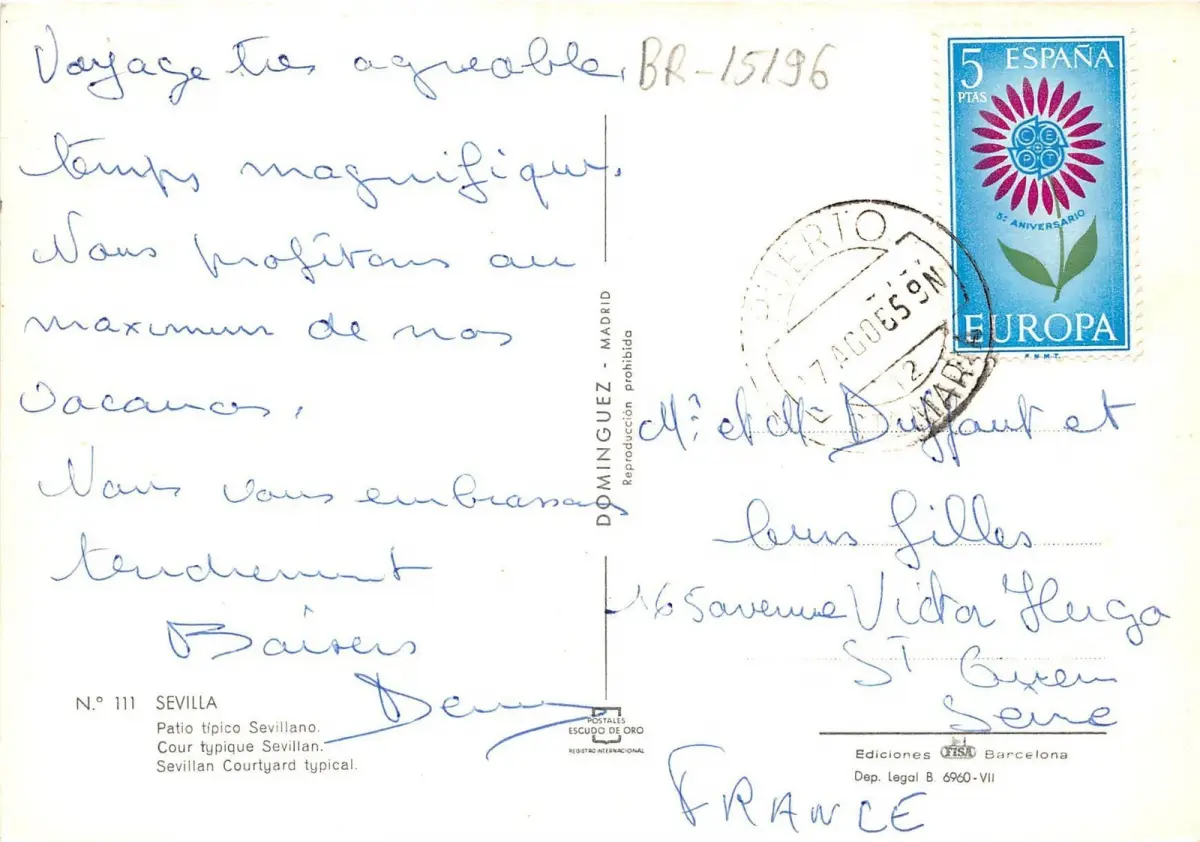 Voyage tres agreable,
temps magnifique.
Nous profitons au
maximum de nos
vacances.
Nous vous embrassons
tendrement
Baisers
N.° 111 SEVILLA
Patio típico Sevillano.
Cour typique Sevillan.
Sevillan Courtyard typical.
BR-15196
DOMINGUEZ - MADRID
Reproducción prohibida
POSTALES
ESCUDO DE ORO
REGISTRO INTERNACIONAL
5 ESPAÑA
PTAS
CEPT
5º ANIVERSARIO
EUROPA
F.N.M.T.
PUERTO
17 AGO 65 9N
12
MARIA
Mr et Mme et
leurs filles
165 avenue Victor Hugo
ST Ouen
Seine
FRANCE
Ediciones FISA Barcelona
Dep. Legal B. 6960-VII